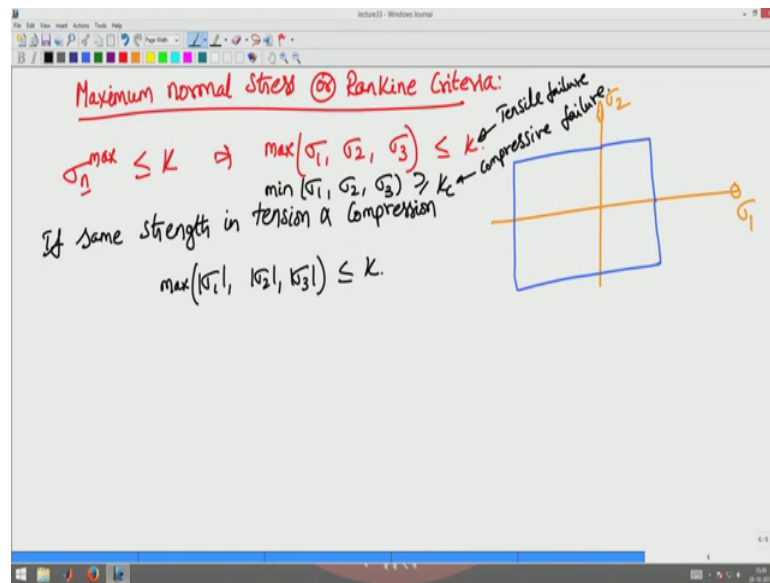 lecture33 - Windows Journal
File Edit View Insert Actions Tools Help
Page Width
B I
Maximum normal Stress or Rankine Criteria:
σ_n^max ≤ K ⇒ max(σ1, σ2, σ3) ≤ K. ← Tensile failure
min (σ1, σ2, σ3) ≥ Kc ← compressive failure.
If same strength in tension & compression
max(|σ1|, |σ2|, |σ3|) ≤ K.
σ2
σ1
6 / 6
6